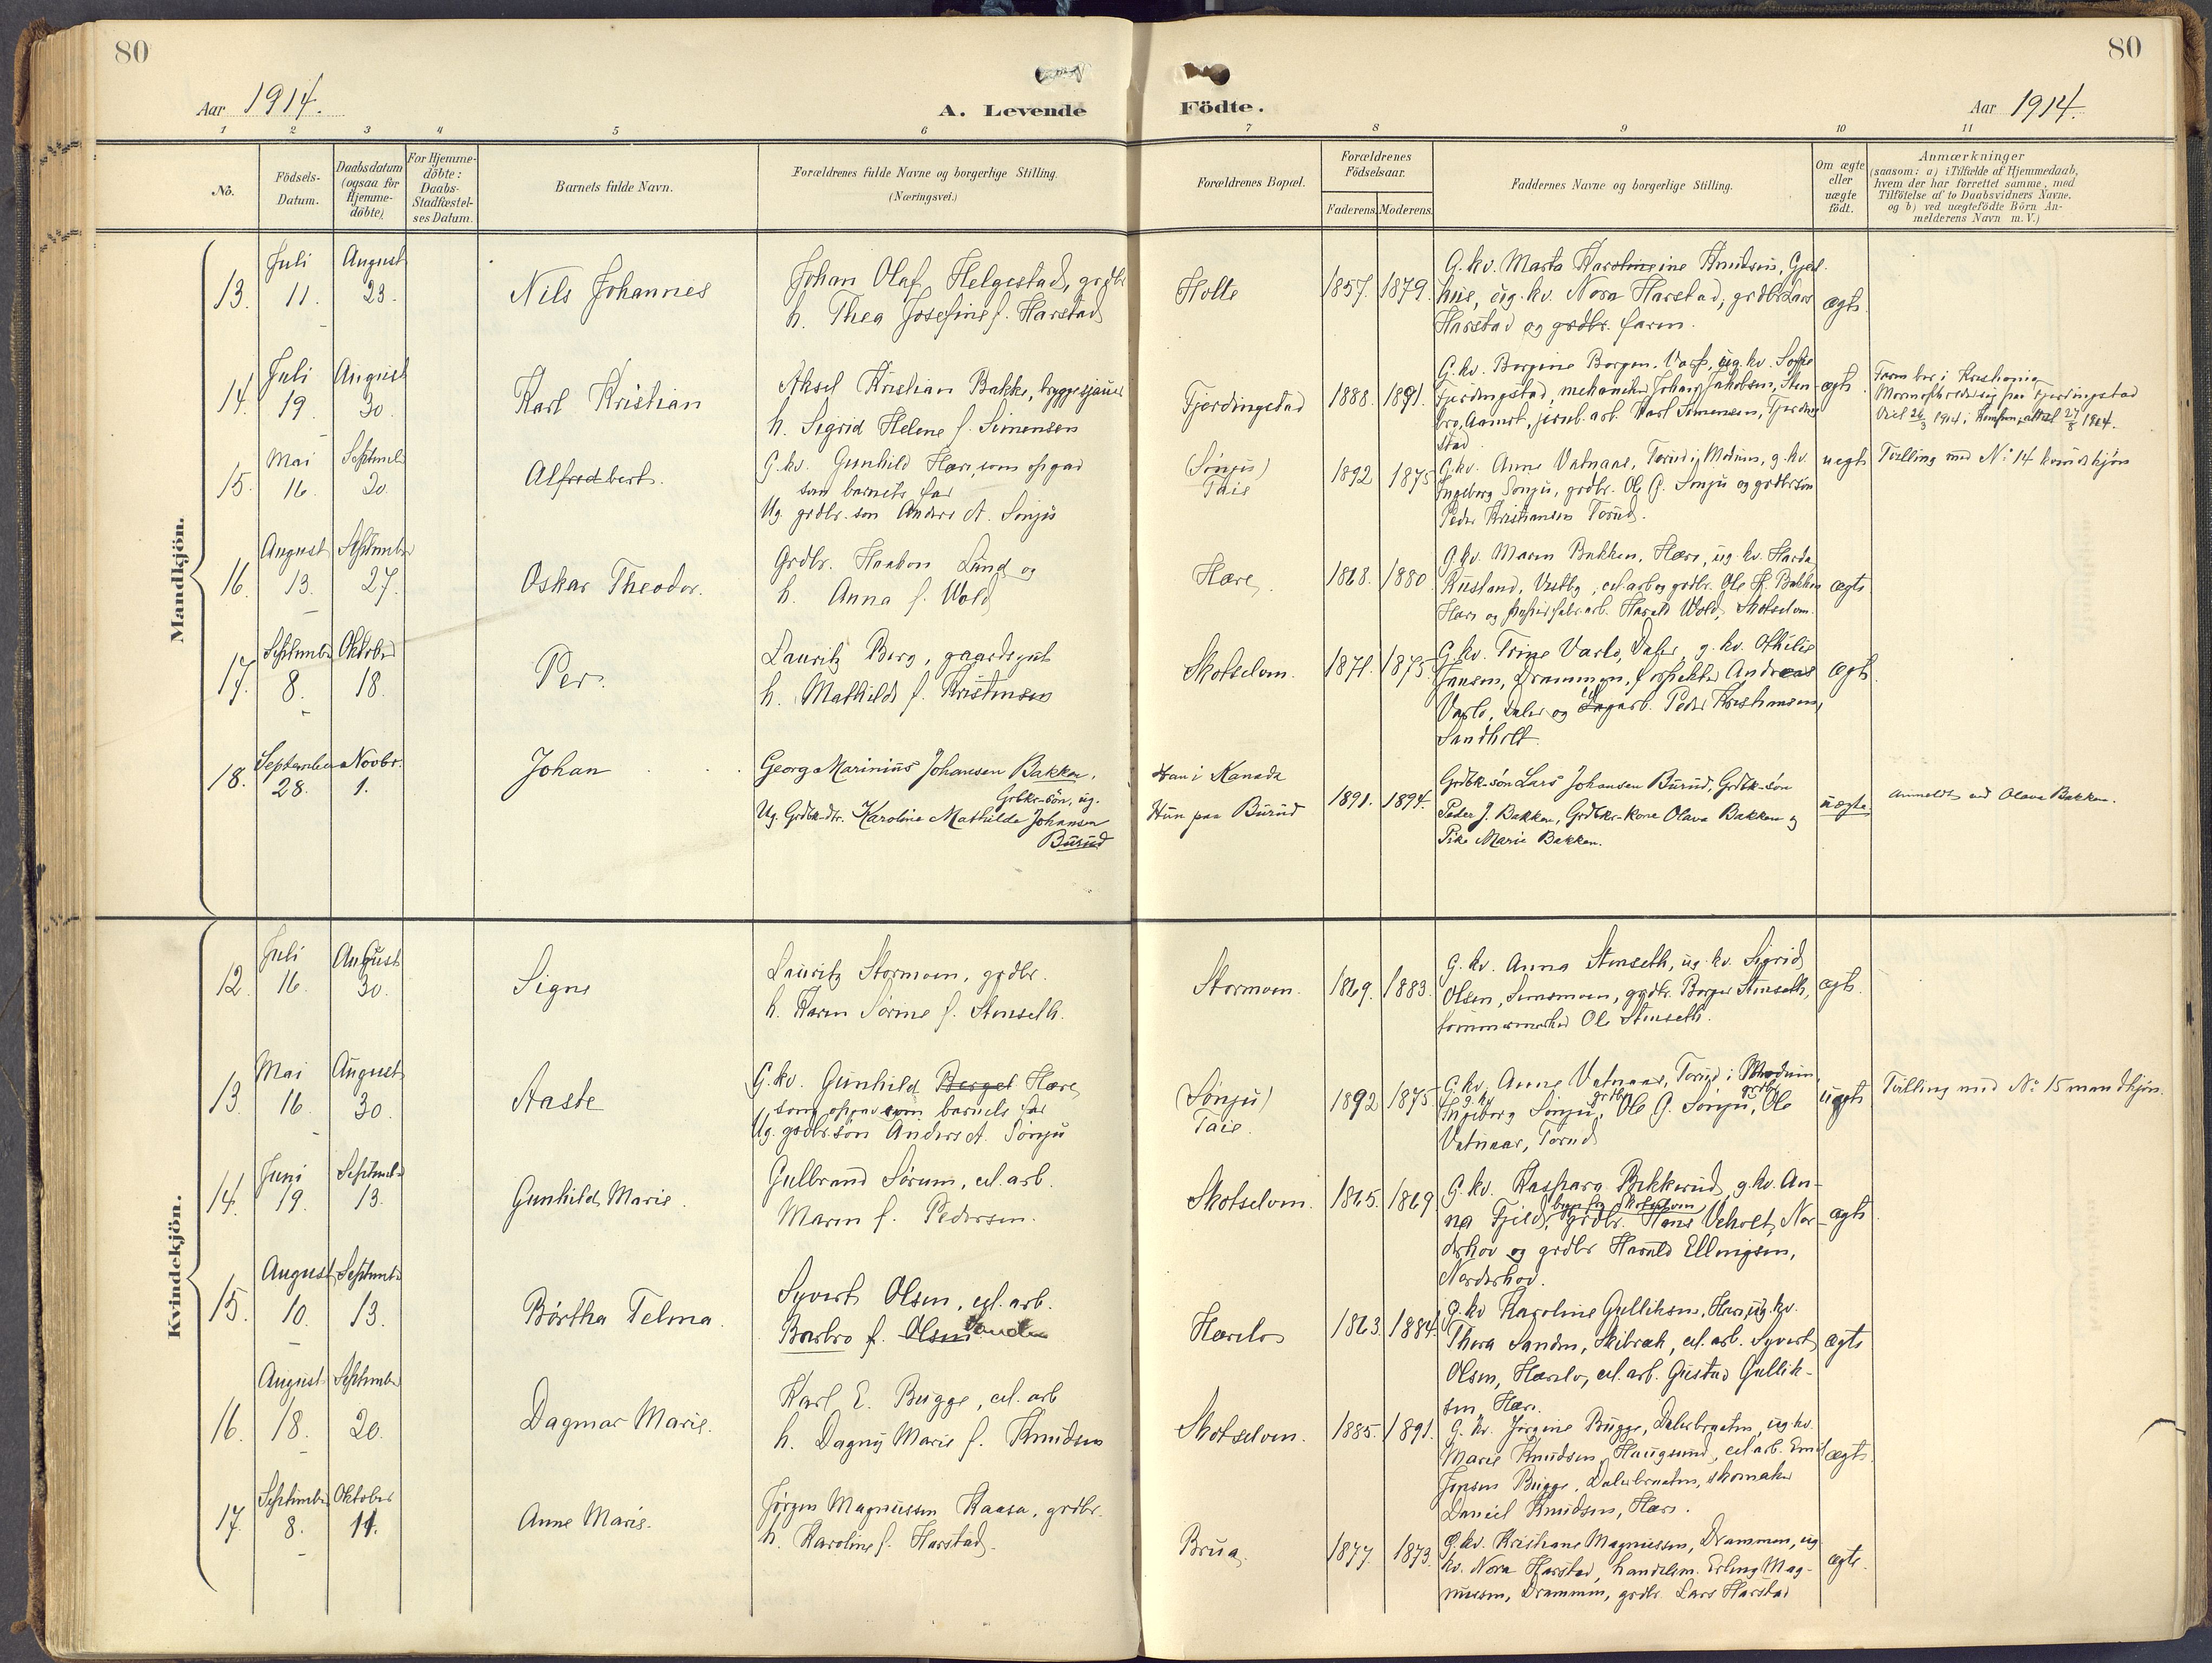 80
80
Aar 1914.
A. Levende
Födte.
Aar 1914.
1 2 3 4 5 6 7 8 9 10 11
No.
Födsels-
Datum.
Daabsdatum
(ogsaa for
Hjemme-
döbte)
For Hjemme-
döbte:
Daabs-
Stadfæstel-
ses Datum.
Barnets fulde Navn.
Forældrenes fulde Navne og borgerlige Stilling.
(Næringsvei.)
Forældrenes Bopæl.
Forældrenes
Födselsaar.
Faderens. Moderens.
Faddernes Navne og borgerlige Stilling.
Om ægte
eller
uægte
födt.
Anmærkninger
(saasom: a) i Tilfælde af Hjemmedaab,
hvem der har forrettet samme, med
Tilföielse af to Daabsvidners Navne,
og b) ved uægtefödte Börn An-
melderens Navn m. V.)
Mandkjön.
13.
Juli
11.
August
23.
Nils Johannes
Johan Olaf Helgestad, grdbr
h. Thea Josefine f. Harstad
Holte
1857. 1879.
G. kv. Marta Karolineine Knudsen, Gjed-
hus, ug. kv. Nora Harstad, grdbr Lars
Harstad og grdbr. faren.
ægte
14.
Juli
19.
August
30.
Karl Kristian
Aksel Kristian Bakke, bryggesjauer
h. Sigrid Helene f. Simensen
Fjerdingstad
1888. 1891.
G. kv. Borgine Borgen, Varp, ug. kv. Sofie
Fjerdingstad, mekaniker Johan Jakobsen, Sten-
bro, Aamot, jernb. arb. Karl Simensen, Fjerding
stad
ægte
Faren bor i Kristiania
Moren opholder sig paa Fjerdingstad
Viet 26/3 1914 i attest 27/8 1914.
15.
Mai
16.
Septembr
20.
Alfredbert.
G. kv. Gunhild Hære, som opgav
som barnets far
Ug. grdbr. søn Anders A. Sønju
(Sønju)
Taie
1892 1875
G. kv. Anne Vatnaas, Torud i Modum, g. kv.
Ingeborg Sønju, grdbr. Ole G. Sønju og grdbrsøn
Peder Kristiansen Torud.
uegte
Tvilling med No 14 kvindekjøn
16.
August
13.
September
27.
Oskar Theodor.
Grdbr. Haakon Lund og
h. Anna f. Wold
Hære
1868. 1880
G. kv. Maren Bakken, Hære, ug. kv. Harda
Rusland, Vestby, cel. arb og grdbr. Ole H. Bakken
Hære og papirfabr. arb. Harald Wold, Skotselven.
ægte
17.
September
8.
Oktober
18.
Per.
Lauritz Berg, gaardsgut
h. Mathilde f. Kristensen
Skotselven.
1871. 1875.
G. kv. Trine Varlo, Daler, g. kv. Othilie
Jansen, Drammen, forpakter Andreas
Varlo, Daler og Dagarb. Peder Kristiansen,
Sandholt.
ægte
18.
September
28.
Novbr.
1.
Johan
Georg Marinius Johansen Bakken,
Grbkr-sön, ug.
Ug. Grdbk-dtr. Karoline Mathilde Johansen
Burud
Han i Kanada
Hun paa Burud
1891. 1894.
Grdbk-sön Lars Johansen Burud, Grdbk-sön
Peder J. Bakken, Grdbkr-kone Olava Bakken og
Pike Marie Bakken.
uægte
Anmeldt ved Olava Bakken.
Kvindekjön.
12.
Juli
16.
August
30.
Signe
Lauritz Stormoen, grdbr.
h. Karen Sørine f. Stenseth.
Stormoen.
1869. 1883.
G. kv. Anna Stenseth, ug. kv. Sigrid
Olsen, Semsmoen, grdbr. Borger Stenseth,
tømmermerker Ole Stenseth.
ægte.
13.
Mai
16.
August
30.
Aaste
G. kv. Gunhild Berget Hære
som opgav som barnets far
Ug. grdbr. søn Anders A. Sønju
(Sønju)
Taie.
1892 1875
G. kv. Anne Vatnaas, Torud i Modum,
g. kv. grdbr. grdbr.
Ingeborg Sønju, Ole G. Sønju, Ole
Vatnaas, Torud
uegte
Tvilling med No 15 mandkjøn.
14.
Juni
19.
September
13.
Gunhild Marie.
Gulbrand Sørum, cel. arb.
Maren f. Pedersen.
Skotselven.
1865. 1869
G. kv. Kaspara Bekkerud, g. kv. An-
na Fjeld, Skotselven
grdbr. Hans Veholt, Nor-
derhov og grdbr Harald Ellingsen,
Norderhov.
ægte
15.
August
10.
Septembr
13.
Börtha Telma.
Syvert Olsen, cel. arb.
Barbro f. Olsen Sanden
Hærelo
1863. 1884.
G. kv Karoline Gulliksen, Hære, ug. kv.
Thora Sanden, Skibræk, cel. arb. Syvert
Olsen, Hærelo, cel. arb. Gustav Gullik-
sen, Hære.
ægte
16.
August
18.
September
20.
Dagmar Marie.
Karl E. Bugge, cel. arb
h. Dagny Marie f. Knudsen
Skotselven.
1885. 1891.
G. kv. Jørgine Bugge, Dalerbraaten, ug. kv.
Marie Knudsen, Haugsund, cel. arb. Emil
Jensen Bugge, Dalerbraaten, skomaker
Daniel Knudsen, Hære.
ægte
17.
September
8.
Oktober
11.
Anne Marie.
Jørgen Magnussen Kaasa, grdbr.
h. Karoline f. Harstad.
Brua.
1877. 1873.
G. kv. Kristiane Magnussen, Drammen, ug
kv. Nora Harstad, handelsm. Erling Mag-
nussen, Drammen, grdbr. Lars Harstad
ægte.